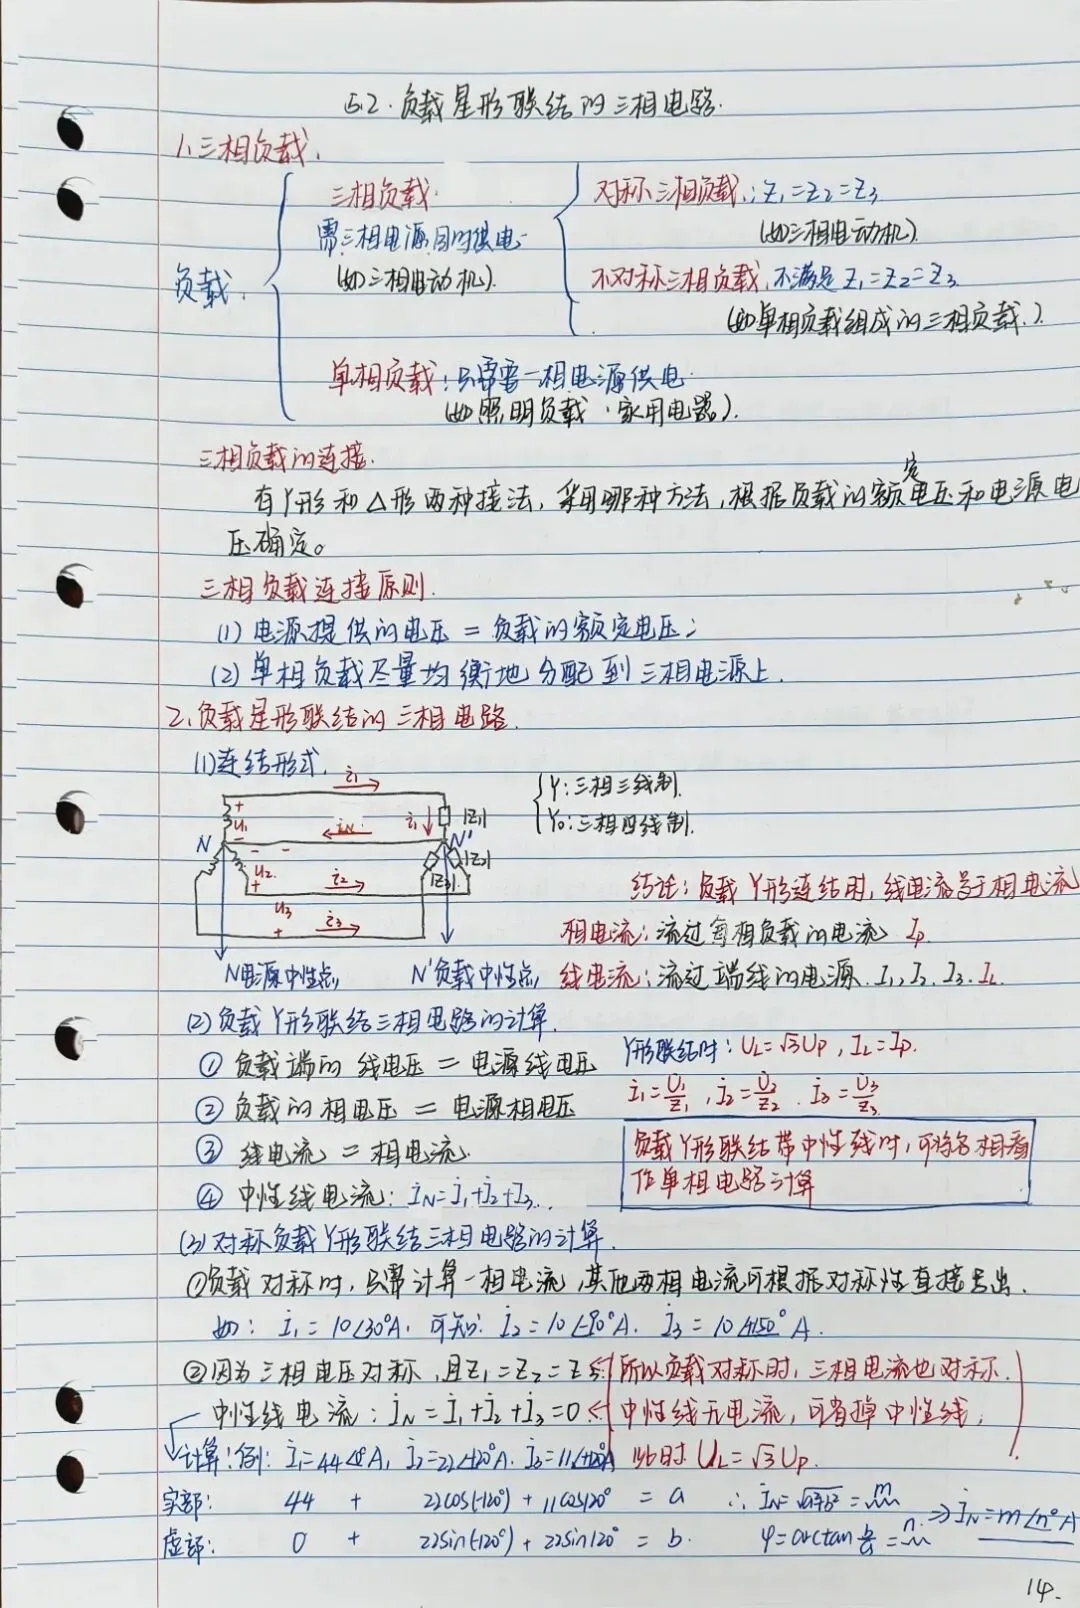 5.2.负载星形联结的三相电路.
1.三相负载.
三相负载.
对称三相负载:Z₁=Z₂=Z₃
需三相电源同时供电
(如三相电动机).
(如三相电动机).
不对称三相负载,不满足Z₁=Z₂=Z₃
负载.
(如单相负载组成的三相负载.)
单相负载:只需要一相电源供电.
(如照明负载、家用电器).
三相负载的连接.
有Y形和△形两种接法,采用哪种方法,根据负载的额定电压和电源电
压确定。
三相负载连接原则.
(1)电源提供的电压=负载的额定电压;
(2)单相负载尽量均衡地分配到三相电源上.
2.负载星形联结的三相电路.
(1)连结形式.
Y:三相三线制.
Y₀:三相四线制.
i₁
+
u₁
-
iN
i₁
|Z₁|
N
N'
- -
u₂
+
i₂
|Z₃|
|Z₂|
u₃
+
i₃
结论:负载Y形连结时,线电流等于相电流
相电流:流过每相负载的电流 Iₚ.
N电源中性点,
N'负载中性点,
线电流:流过端线的电源.I₁,I₂,I₃.I_L.
(2)负载Y形联结三相电路的计算.
①负载端的线电压=电源线电压
Y形联结时:U_L=√3Uₚ,I_L=Iₚ.
②负载的相电压=电源相电压
İ₁=U̇₁/Z₁,İ₂=U̇₂/Z₂.İ₃=U̇₃/Z₃
③线电流=相电流.
负载Y形联结带中性线时,可将各相看
作单相电路计算
④中性线电流:İN=İ₁+İ₂+İ₃.
(3)对称负载Y形联结三相电路的计算.
①负载对称时,只需计算一相电流,其他两相电流可根据对称性直接写出.
如:İ₁=10∠30°A.可知:İ₂=10∠-90°A.İ₃=10∠150°A.
②因为三相电压对称,且Z₁=Z₂=Z₃
所以负载对称时,三相电流也对称.
中性线电流:İN=İ₁+İ₂+İ₃=0
中性线无电流,可省掉中性线,
计算:例:İ₁=44∠0°A,İ₂=22∠-120°A.İ₃=11∠+120°A
此时U_L=√3Uₚ.
实部: 44 + 22cos(-120°)+11cos120° = a
∴IN=√a²+b²=m
虚部: 0 + 22sin(-120°)+22sin120° = b.
φ=arctan b/a=n.
⇒İN=m∠n°A
14.